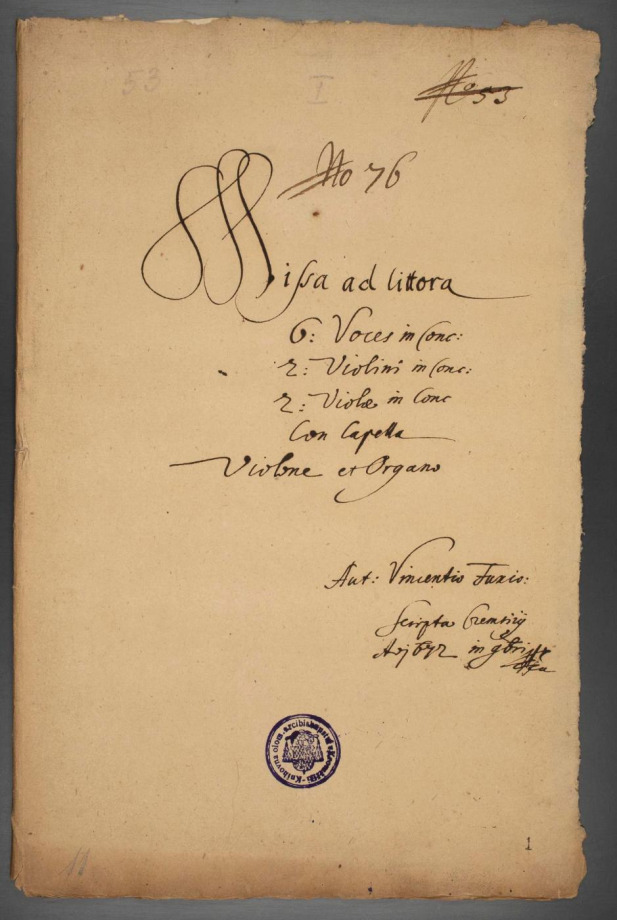 53
I
No 53
No 76
Missa ad littora
6: Voces in Conc:
2: Violini in Conc:
2: Violæ in Conc
Con Capella
Violone et Organo
Aut: Vincentio Fuxio:
Scripta Cremsirij
Ao 1672 in 9bri
Knihovna olom. arcibiskupství v Kroměříži
1
11